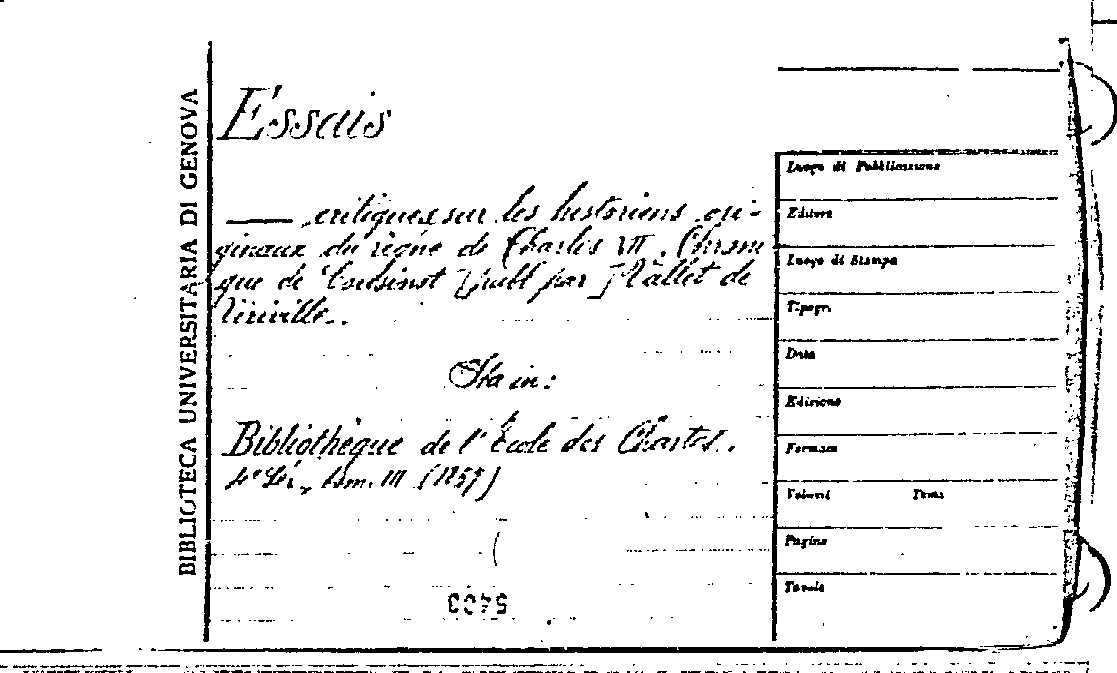 BIBLIOTECA UNIVERSITARIA DI GENOVA
Essais
—— critiques sur les historiens ori-
ginaux du règne de Charles VII. Chroni
que de Cousinot [publ par] Vallet de
Viriville.
Sta in:
Bibliothèque de l'École des Chartes.
4e Sér., tom. III (1857)
Luogo di Pubblicazione
Editore
Luogo di Stampa
Tipogr.
Data
Edizione
Formato
Volumi
Tomi
Pagine
Tavole